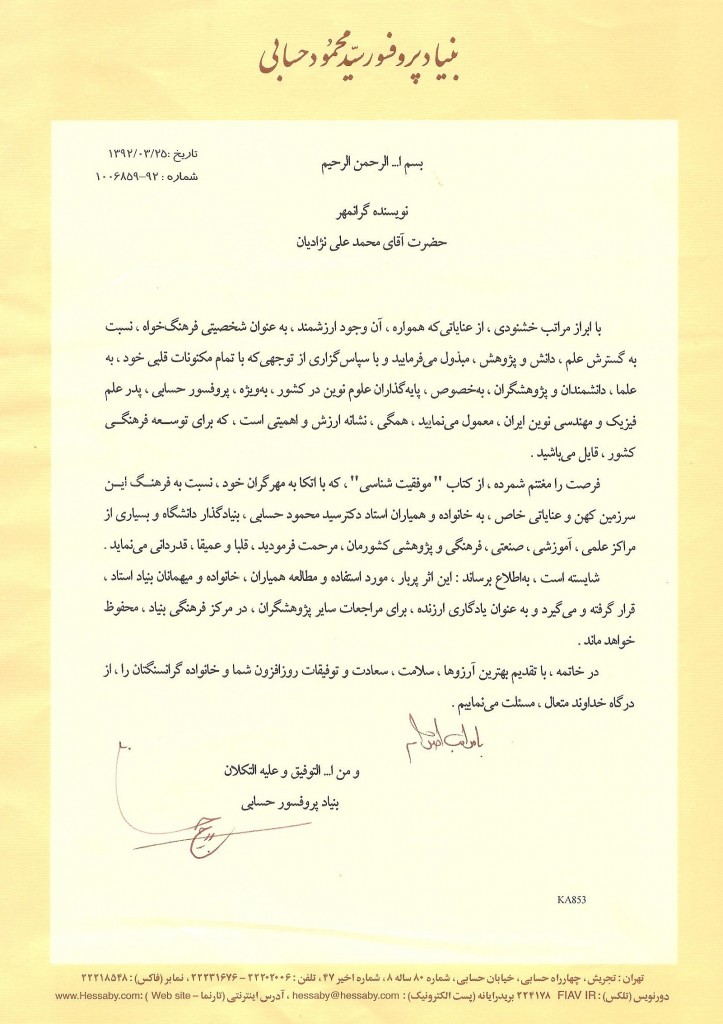 بنیاد پروفسور سیّد محمُود حسابی
تاریخ :۱۳۹۲/۰۳/۲۵
شماره : ۹۲-۱۰۰۶۸۵۹
بسم ا... الرحمن الرحیم
نویسنده گرانمهر
حضرت آقای محمد علی نژادیان
با ابراز مراتب خشنودی ، از عنایاتی‌که همواره ، آن وجود ارزشمند ، به عنوان شخصیتی فرهنگ‌خواه ، نسبت
به گسترش علم ، دانش و پژوهش ، مبذول می‌فرمایید و با سپاس‌گزاری از توجهی‌که با تمام مکنونات قلبی خود ، به
علما ، دانشمندان و پژوهشگران ، به‌خصوص ، پایه‌گذاران علوم نوین در کشور ، به‌ویژه ، پروفسور حسابی ، پدر علم
فیزیک و مهندسی نوین ایران ، معمول می‌نمایید ، همگی ، نشانه ارزش و اهمیتی است ، که برای توسعه فرهنگی
کشور ، قایل می‌باشید .
فرصت را مغتنم شمرده ، از کتاب " موفقیت شناسی " ، که با اتکا به مهرگران خود ، نسبت به فرهنگ این
سرزمین کهن و عنایاتی خاص ، به خانواده و همیاران استاد دکترسید محمود حسابی ، بنیادگذار دانشگاه و بسیاری از
مراکز علمی ، آموزشی ، صنعتی ، فرهنگی و پژوهشی کشورمان ، مرحمت فرمودید ، قلبا و عمیقا ، قدردانی می‌نماید .
شایسته است ، به‌اطلاع برساند : این اثر پربار ، مورد استفاده و مطالعه همیاران ، خانواده و میهمانان بنیاد استاد ،
قرار گرفته و می‌گیرد و به عنوان یادگاری ارزنده ، برای مراجعات سایر پژوهشگران ، در مرکز فرهنگی بنیاد ، محفوظ
خواهد ماند .
در خاتمه ، با تقدیم بهترین آرزوها ، سلامت ، سعادت و توفیقات روزافزون شما و خانواده گرانسنگتان را ، از
درگاه خداوند متعال ، مسئلت می‌نماییم .
با مراتب احترام
و من ا... التوفیق و علیه التکلان
بنیاد پروفسور حسابی
KA853
تهران : تجریش ، چهارراه حسابی ، خیابان حسابی ، شماره ۸۰ ساله ۸ ، شماره اخیر ۴۷ ، تلفن : ۲۲۲۰۲۰۰۶ – ۲۲۲۳۱۶۷۶ ، نمابر (فاکس) : ۲۲۲۱۸۵۴۸
دورنویس (تلکس) : ۲۲۴۱۷۸ FIAV IR بریدرایانه (پست الکترونیک) : hessaby@hessaby.com ، آدرس اینترنتی (تارنما – Web site ) : www.Hessaby.com